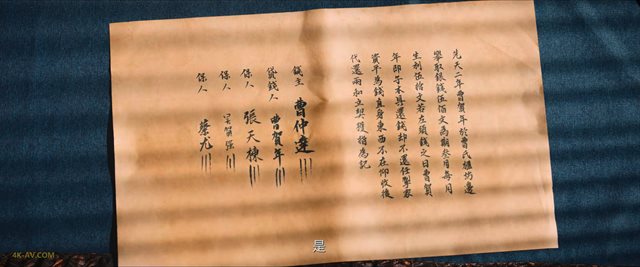 先天二年曹賀年於曹氏櫃坊邊
舉取銀錢伍佰文為期叁月每月
生利伍拾文若左須錢之日曹賀
年即子本具還錢却不還任掣家
資平為錢直身東西不在仰收後
代還兩和立契獲指為記
錢主 曹仲達
貸錢人 曹賀年
保人 張天棟
保人
保人
是
4K-AV.COM